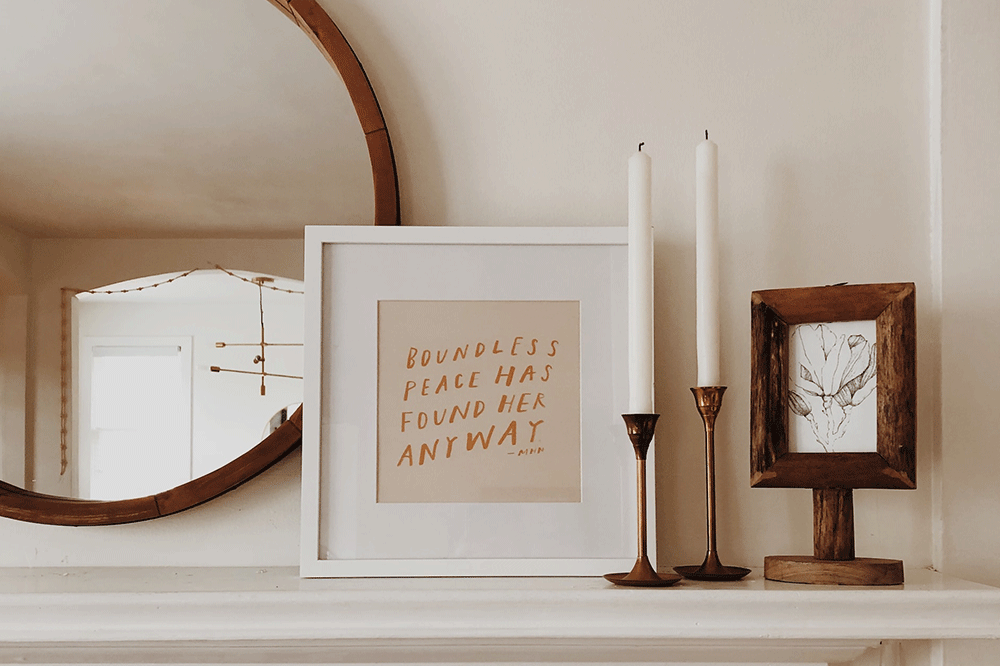 BOUNDLESS
PEACE HAS
FOUND HER
ANYWAY.
-MHN